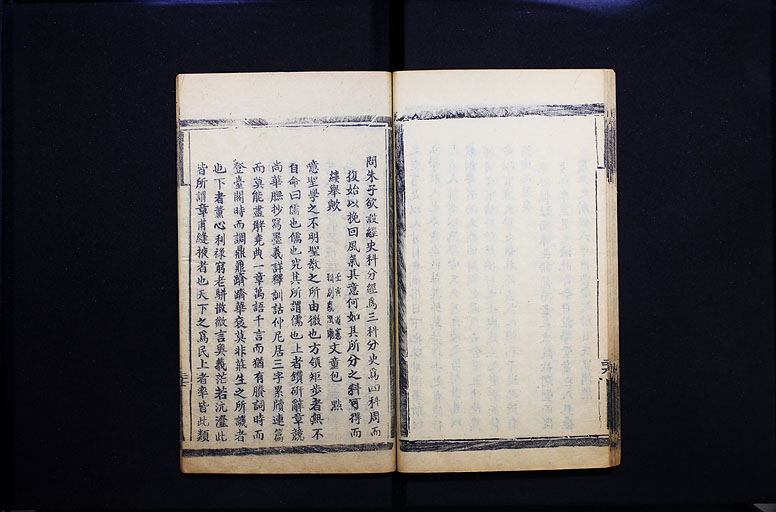 問朱子欲設經史科分經爲三科分史爲四科周而
復始以挽回風氣其意何如其所分之科可得而
縷舉歟
壬寅 道憲
文童包 點
意聖學之不明聖教之所由微也方領矩步者無不
自命曰儒也儒也究其所謂儒也上者鑽研辭章競
尚華膴抄寫墨義詳釋訓詁仲尼居三字累牘連篇
而莫能盡解堯典一章萬語千言而猶有賸詞時而
登臺閣時而調鼎鼐躋躋華袞莫非莊生之所譏者
也下者薰心利祿窮老駢散微言奧義茫若沆瀣此
皆所謂章甫縫掖者也天下之爲民上者率皆此類